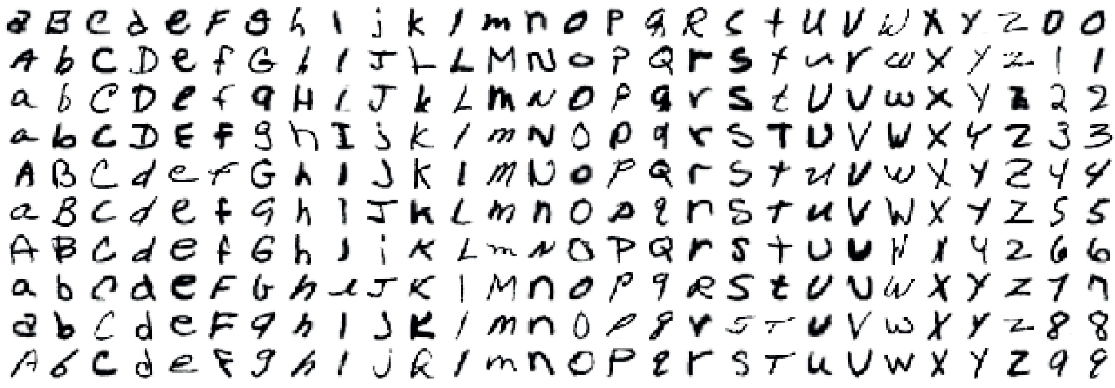 a B C d e F g h l j k l m n O P q R S t U V W X Y Z 0 0
A b C D e f G h l J L L M N O P Q r S t u r w X Y z 1 1
a b C D e f q H l J k L m N O P q r S t U V w X Y Z 2 2
a b C D E F g h I j k l m N O P q r S T U V W X Y Z 3 3
A B C d e f G h l J K l m N O P Q r S t u V w X Y Z 4 4
a B C d e f g h l J k L m n O p q r S t u V W X Y Z 5 5
A B C d e f G h J i K L m N O P Q r S t U U N X Y Z 6 6
a b C d e F G h l J K l M n O P q R S t U U W X Y Z 7 7
a b C d e F g h l J K l m n O P q r J T U V w X Y Z 8 8
A b C d e F g h l j R l m n O P q r S T u V w X Y Z 9 9